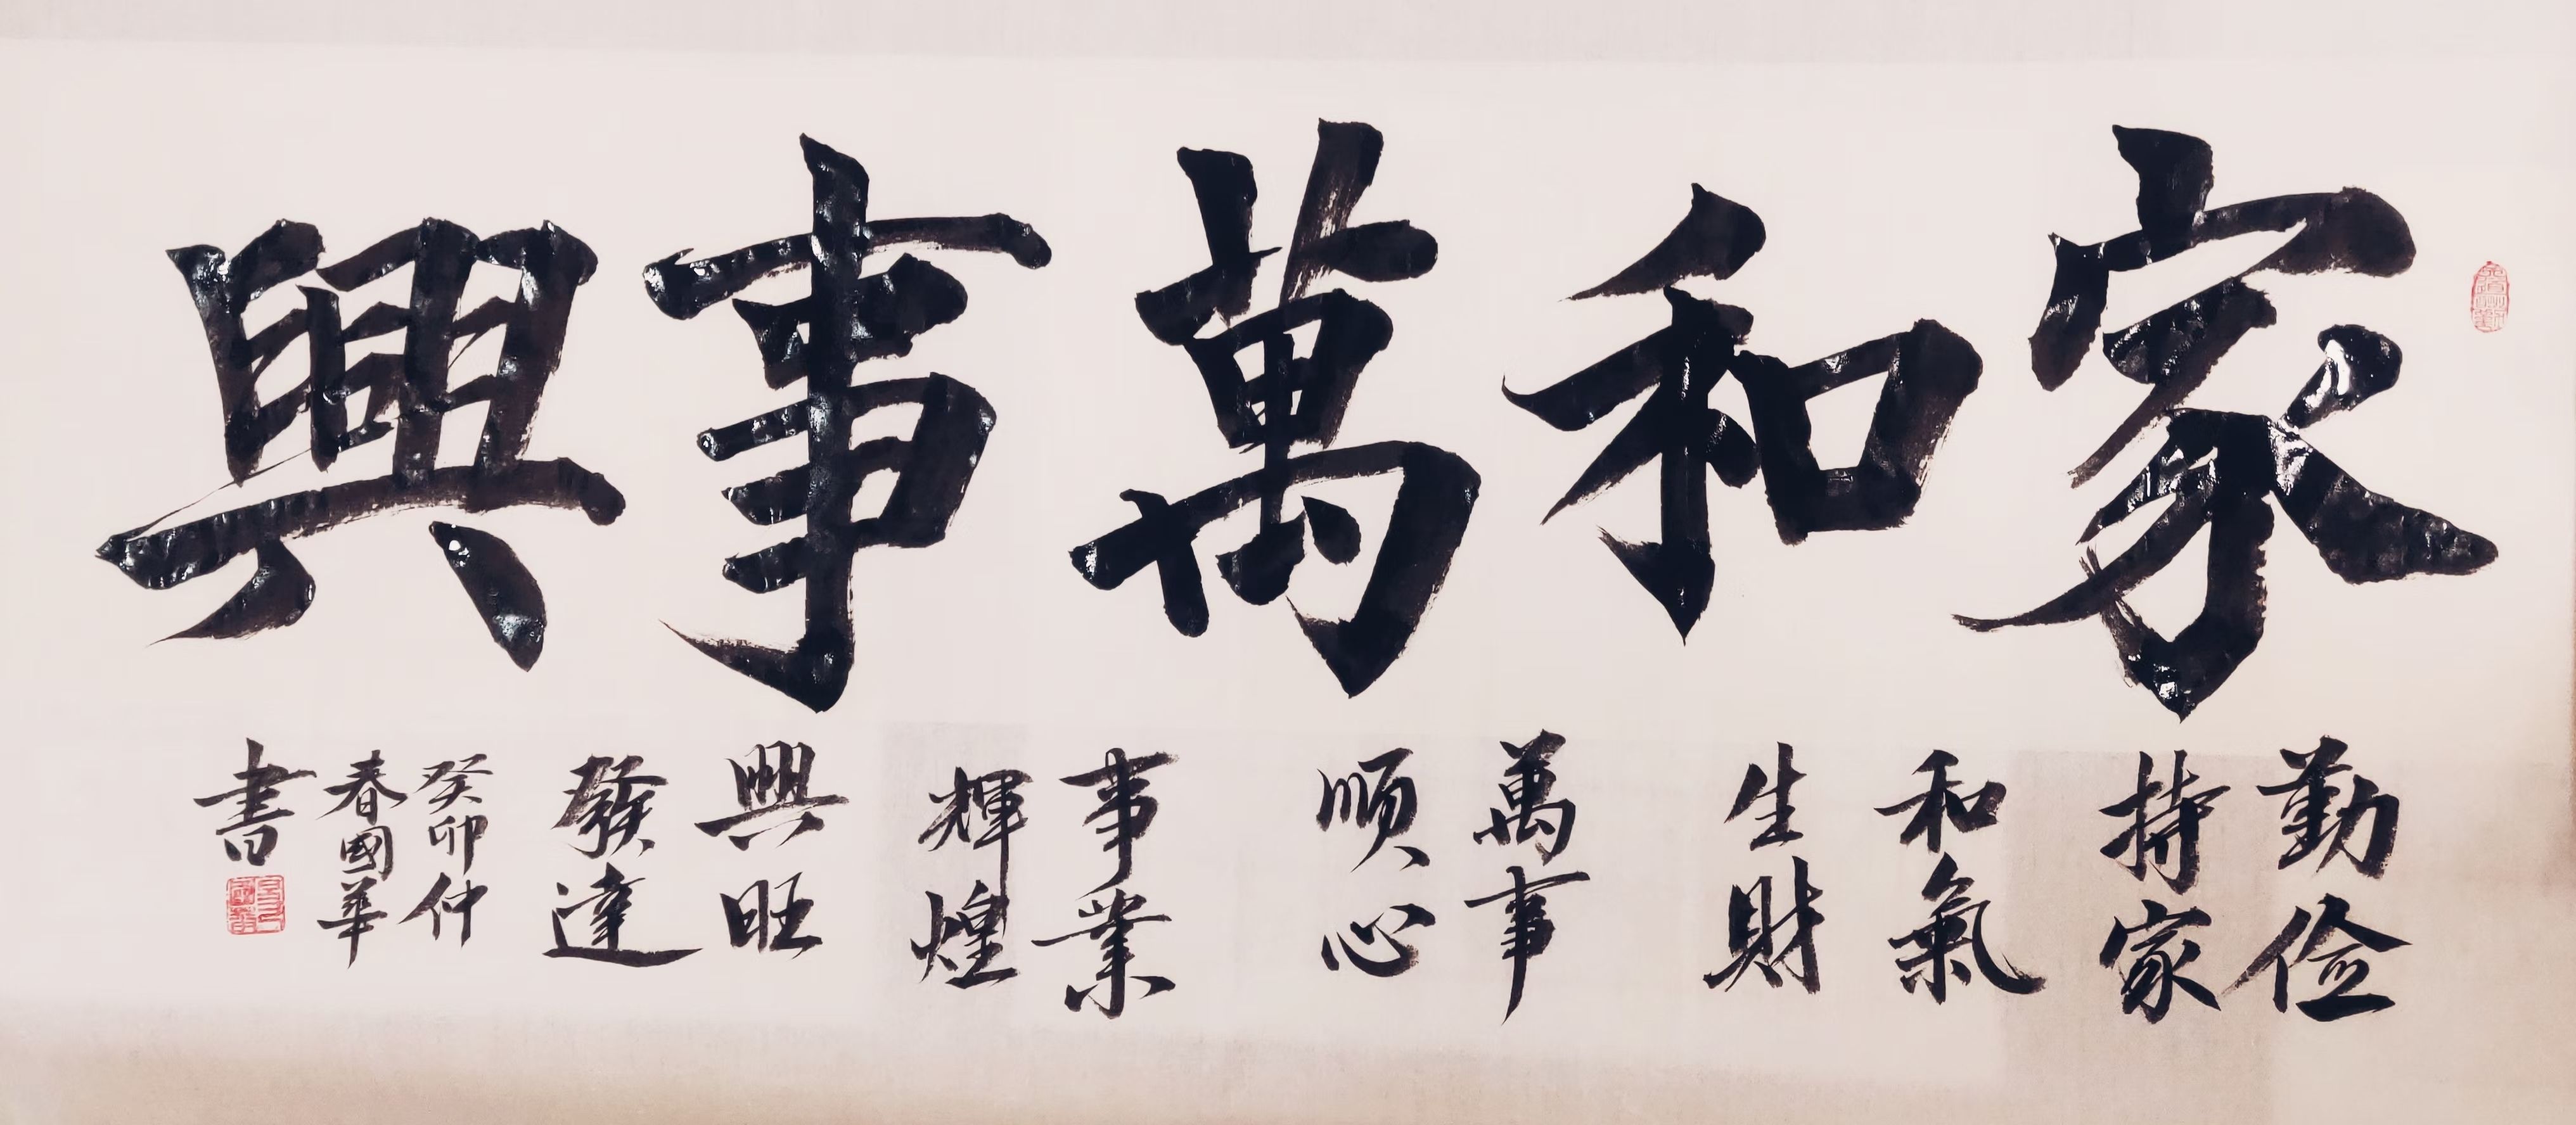 家和萬事興
勤俭
持家
和氣
生財
萬事
順心
事業
輝煌
興旺
發達
癸卯仲
春國華
書